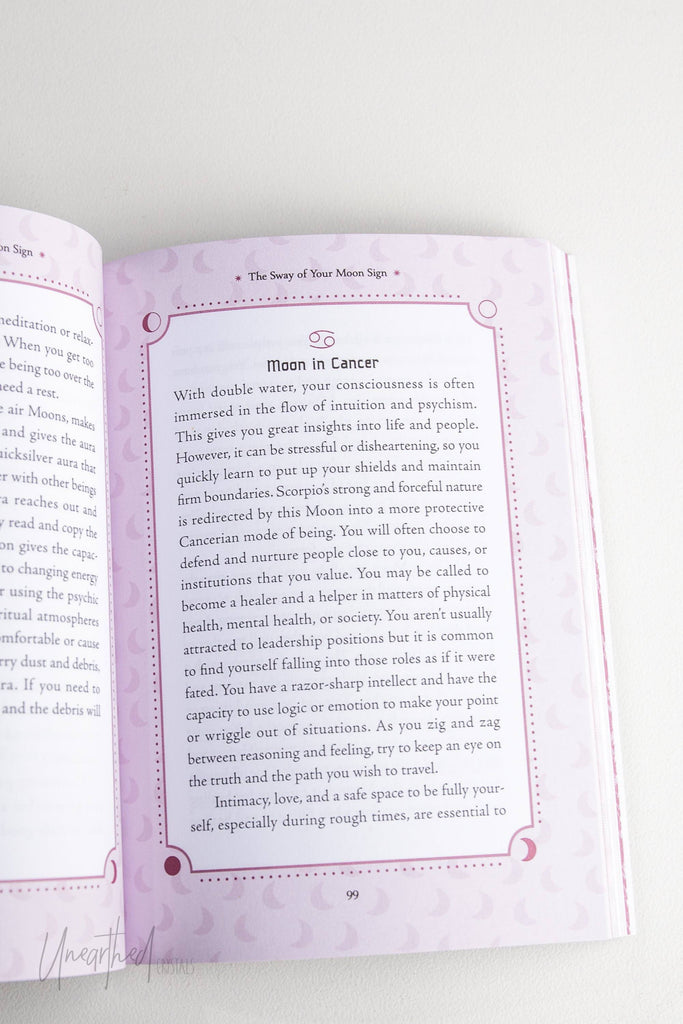 on Sign *
meditation or relax-
When you get too
e being too over the
need a rest.
e air Moons, makes
and gives the aura
uicksilver aura that
er with other beings
ra reaches out and
y read and copy the
on gives the capac-
to changing energy
r using the psychic
ritual atmospheres
omfortable or cause
rry dust and debris,
ra. If you need to
and the debris will
* The Sway of Your Moon Sign *
♋
Moon in Cancer
With double water, your consciousness is often
immersed in the flow of intuition and psychism.
This gives you great insights into life and people.
However, it can be stressful or disheartening, so you
quickly learn to put up your shields and maintain
firm boundaries. Scorpio's strong and forceful nature
is redirected by this Moon into a more protective
Cancerian mode of being. You will often choose to
defend and nurture people close to you, causes, or
institutions that you value. You may be called to
become a healer and a helper in matters of physical
health, mental health, or society. You aren't usually
attracted to leadership positions but it is common
to find yourself falling into those roles as if it were
fated. You have a razor-sharp intellect and have the
capacity to use logic or emotion to make your point
or wriggle out of situations. As you zig and zag
between reasoning and feeling, try to keep an eye on
the truth and the path you wish to travel.
Intimacy, love, and a safe space to be fully your-
self, especially during rough times, are essential to
99
Unearthed CRYSTALS